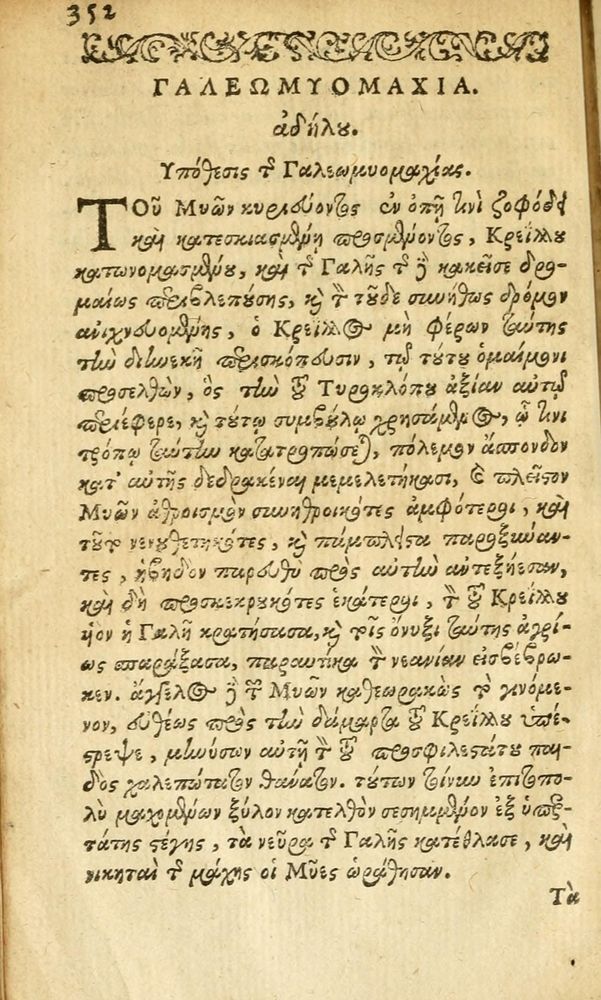 352
ΓΑΛΕΩΜΥΟΜΑΧΙΑ.
ἀδήλου.
Υπόθεσις τῆς Γαλεωμυομαχίας.
ΤΟῦ Μυῶν κυριεύοντος ἐν ὀπῇ τινὶ ζοφώδει
καὶ κατεσκιασμένῃ προσμένοντος, Κρείλλου
κατωνομασμένου, καὶ τῆς Γαλῆς τῆς γὰρ κακεῖσε δρο-
μαίως περιβλεπούσης, καὶ τὸν τοῦδε συνήθως δρόμον
ανιχνευομένης, ὁ Κρείλλος μὴ φέρων ταύτης
τὴν διηνεκῆ περισκόπευσιν, τῷ τούτου ὁμαίμονι
προσελθὼν, ὃς τὴν τοῦ Τυροκλόπου ἀξίαν αὐτῷ
περιέφερε, καὶ τούτῳ συμβούλῳ χρησάμενος, ᾧ τινι
τρόπῳ ταύτην κατατροπώσεται, πόλεμον ἄσπονδον
κατ' αὐτῆς δεδρακέναι μεμελετήκασι, καὶ πλεῖστον
Μυῶν ἀθροισμὸν συνηθροικότες ἀμφότεροι, καὶ
τούτους νενουθετηκότες, καὶ πάμπολλα παροξύναν-
τες, ἡβηδὸν παρευθὺ πρὸς αὐτὴν αντεξῄεσαν,
καὶ δὴ προσκεκρουκότες ἑκάτεροι, τὸν τοῦ Κρείλλου
ὑὸν ἡ Γαλῆ κρατήσασα, καὶ τοῖς ὄνυξι ταύτης ἀγρί-
ως σπαράξασα, παραυτίκα τὸν νεανίαν εἰσβέβρω-
κεν. ἄγγελος γὰρ τῶν Μυῶν καθεωρακὼς τὸ γινόμε-
νον, εὐθέως πρὸς τὴν δάμαρτα τοῦ Κρείλλου ὑπέ-
στρεψε, μηνύσων αὐτῇ τὸν τοῦ προσφιλεστάτου παι-
δὸς χαλεπώτατον θάνατον. τούτων τοίνυν ἐπιτοπο-
λὺ μαχομένων ξύλον κατελθὸν σεσημμένον ἐξ ὑπερ-
τάτης στέγης, τὰ νεῦρα τῆς Γαλῆς κατέθλασε, καὶ
νικηταὶ τῆς μάχης οἱ Μῦες ὡράθησαν.
Τὰ